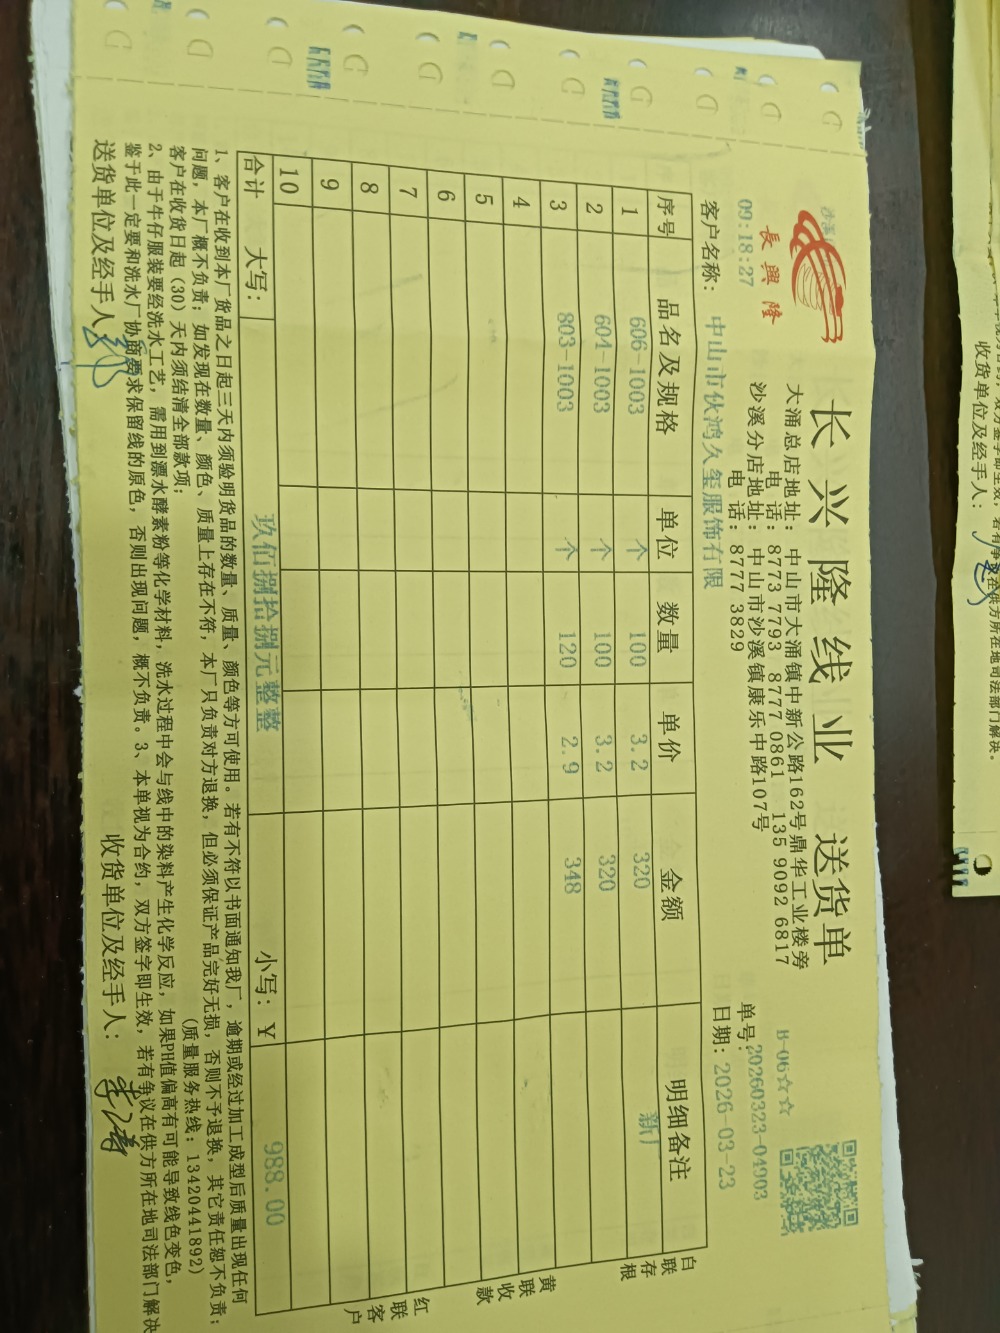 長興隆
长兴隆线业 送货单
大涌总店地址: 中山市大涌镇中新公路162号鼎华工业楼旁
电 话: 8773 7793 8777 0861 135 9092 6817
沙溪分店地址: 中山市沙溪镇康乐中路107号
电 话: 8777 3829
09:18:27
B-06☆☆
单号: 20260323-04903
日期: 2026-03-23
客户名称: 中山市伙鸿久玺服饰有限
序号 品名及规格 单位 数量 单价 金额 明细备注
1 606-1003 个 100 3.2 320 新厂
2 604-1003 个 100 3.2 320
3 803-1003 个 120 2.9 348
4
5
6
7
8
9
10
合计 大写: 玖佰捌拾捌元整整 小写: ¥ 988.00
白联存根
黄联收款
红联客户
1、客户在收到本厂货品之日起三天内须验明货品的数量、质量、颜色等方可使用。若有不符以书面通知我厂,逾期或经过加工成型后质量出现任何
问题,本厂概不负责;如发现在数量、颜色、质量上存在不符,本厂只负责对方退换,但必须保证产品完好无损,否则不予退换,其它责任恕不负责;
客户在收货日起(30)天内须结清全部款项; (质量服务热线: 13420441892)
2、由于牛仔服装要经洗水工艺,需用到漂水酵素粉等化学材料,洗水过程中会与线中的染料产生化学反应,如果PH值偏高有可能导致线色变色,
鉴于此一定要和洗水厂协商要求保留线的原色,否则出现问题,概不负责。3、本单视为合约,双方签字即生效,若有争议在供方所在地司法部门解决
送货单位及经手人: 收货单位及经手人: 李涛
收货单位及经手人: